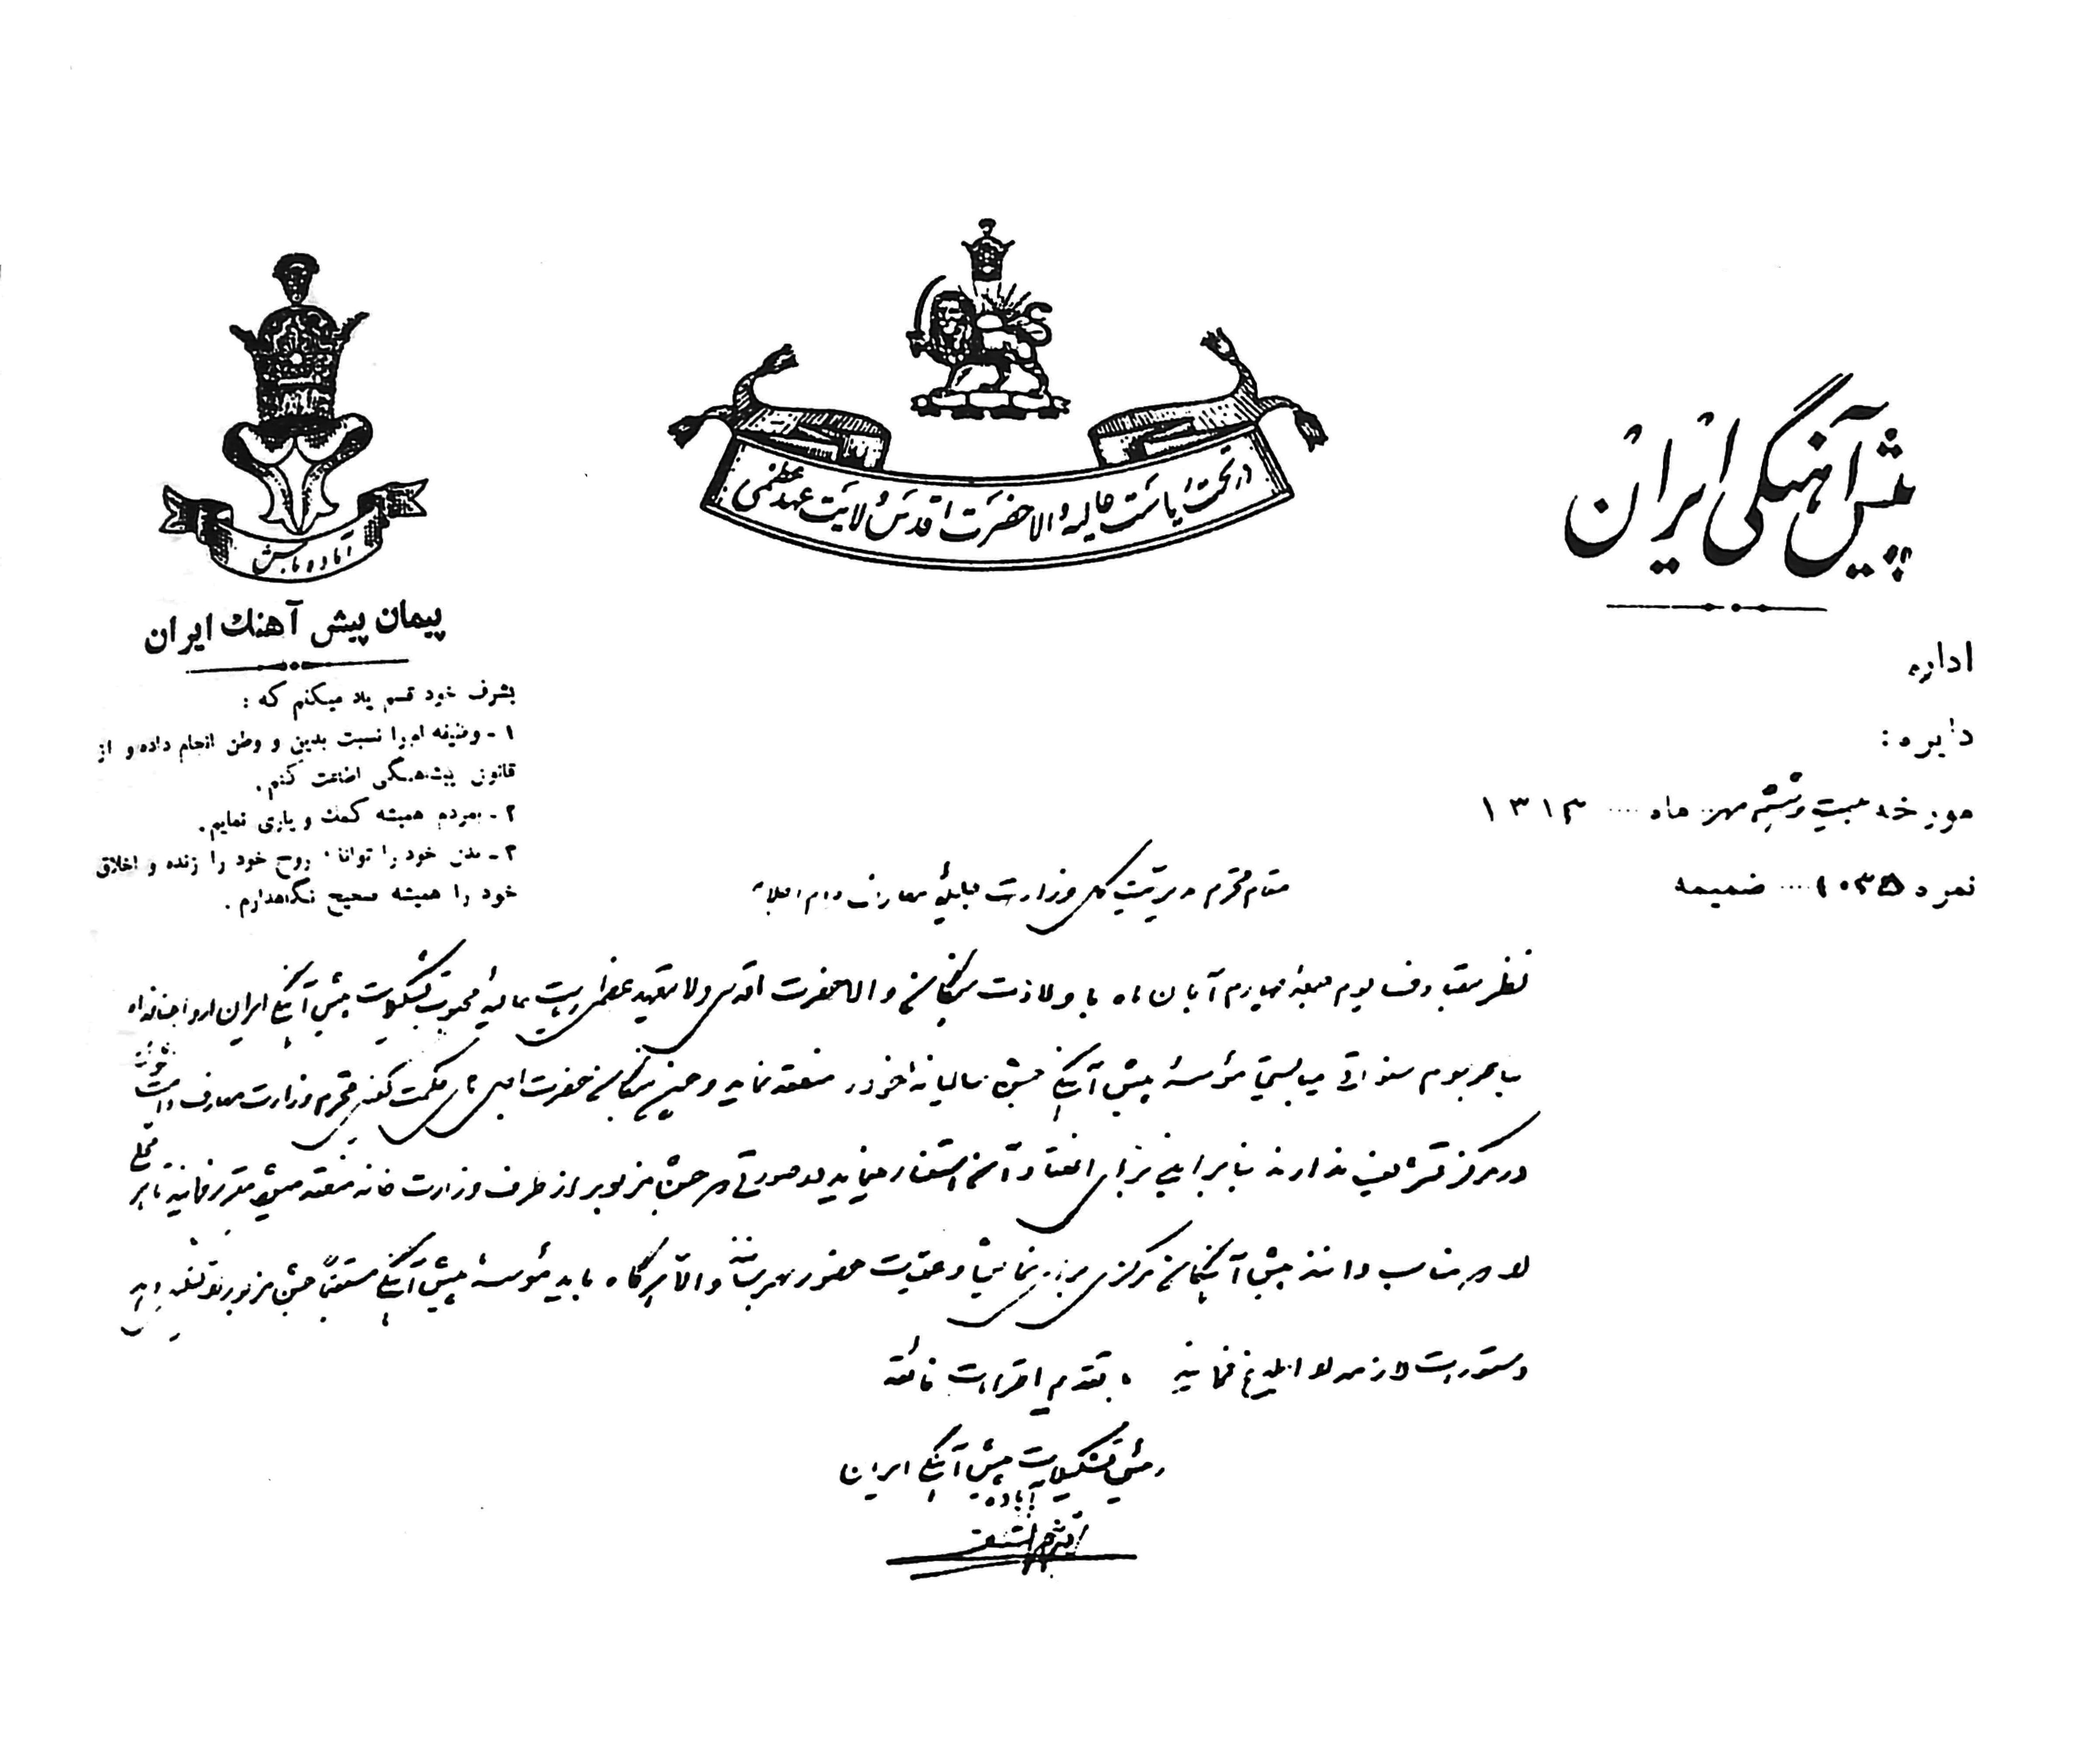 پیش آهنگی ایران
در تحت ریاست عالیه والاحضرت اقدس ولایت عهد عظمی
آماده باش
پیمان پیش آهنك ایران
بشرف خود قسم یاد میکنم که :
۱ - وظیفه ام را نسبت بدین و وطن انجام داده و از
قانون پیشاهنگی اطاعت کنم.
۲ - بمردم همیشه کمك و یاری نمایم.
۳ - بدن خود را توانا، روح خود را زنده و اخلاق
خود را همیشه صحیح نگاهدارم.
اداره
دایره :
مورخه بیست و ششم مهر ماه .... ۱۳۱۳
نمره ۱۰۳۵ .... ضمیمه
مقام محترم مدیریت کل وزارت جلیله معارف دام اجلاله
نظر بتصادف یوم جمعه چهارم آبان ماه با ولادت بندگان والاحضرت اقدس ولایتعهد عظمی ریاست عالیه محبوب تشکیلات پیش آهنگی ایران ارواحنا فداه
بنابر رسوم سنواتی میبایستی مؤسسه پیش آهنگی جشن سالیانه خود را منعقد نماید و چون بندگان حضرت اجل آقای حکمت کفیل محترم وزارت معارف دامت شوکته
در مرکز تشریف ندارند بنابراین برای انعقاد آن استفسار مینماید در صورتی که جشن مزبور از طرف وزارت خانه منعقد میشود مقرر فرمایند تا هر محلی
را که مناسب دانند پیش آهنگان مرکزی برای نمایش و عملیات حضور بهم رسانند والا هر گاه باید مؤسسه پیش آهنگی مستقلاً جشن مزبور را تشکیل دهد
دستورات لازمه را ابلاغ فرمایند با تقدیم احترامات فائقه
رئیس تشکیلات پیش آهنگی ایران